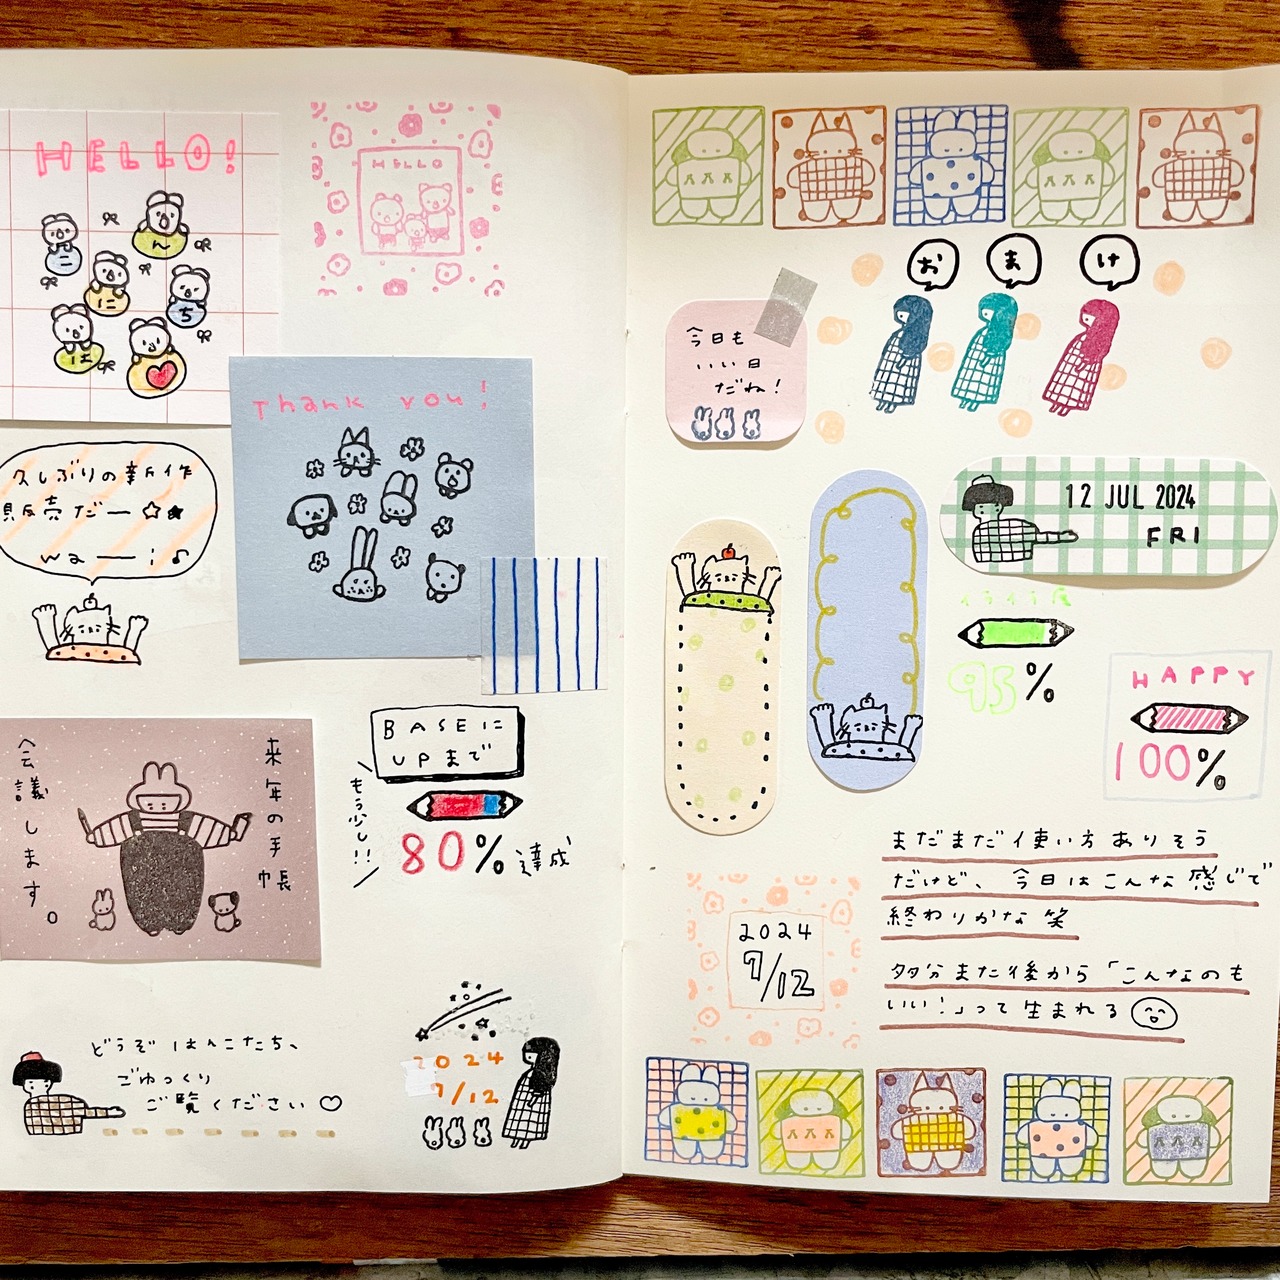 HELLO!
ん
こ
に
ち
は
HELLO
Thank you!
久しぶりの新作
販売だー☆★
wa──;♪
来年の手帳
会議します。
BASEに
UPまで
もう少し!!
80%達成
どうぞはんこたち、
ごゆっくり
ご覧ください♡
2024
7/12
おまけ
今日も
いい日
だね!
12 JUL 2024
FRI
95%
HAPPY
100%
まだまだ使い方ありそう
だけど、今日はこんな感じで
終わりかな笑
2024
7/12
多分また後から「こんなのも
いい!」って生まれる